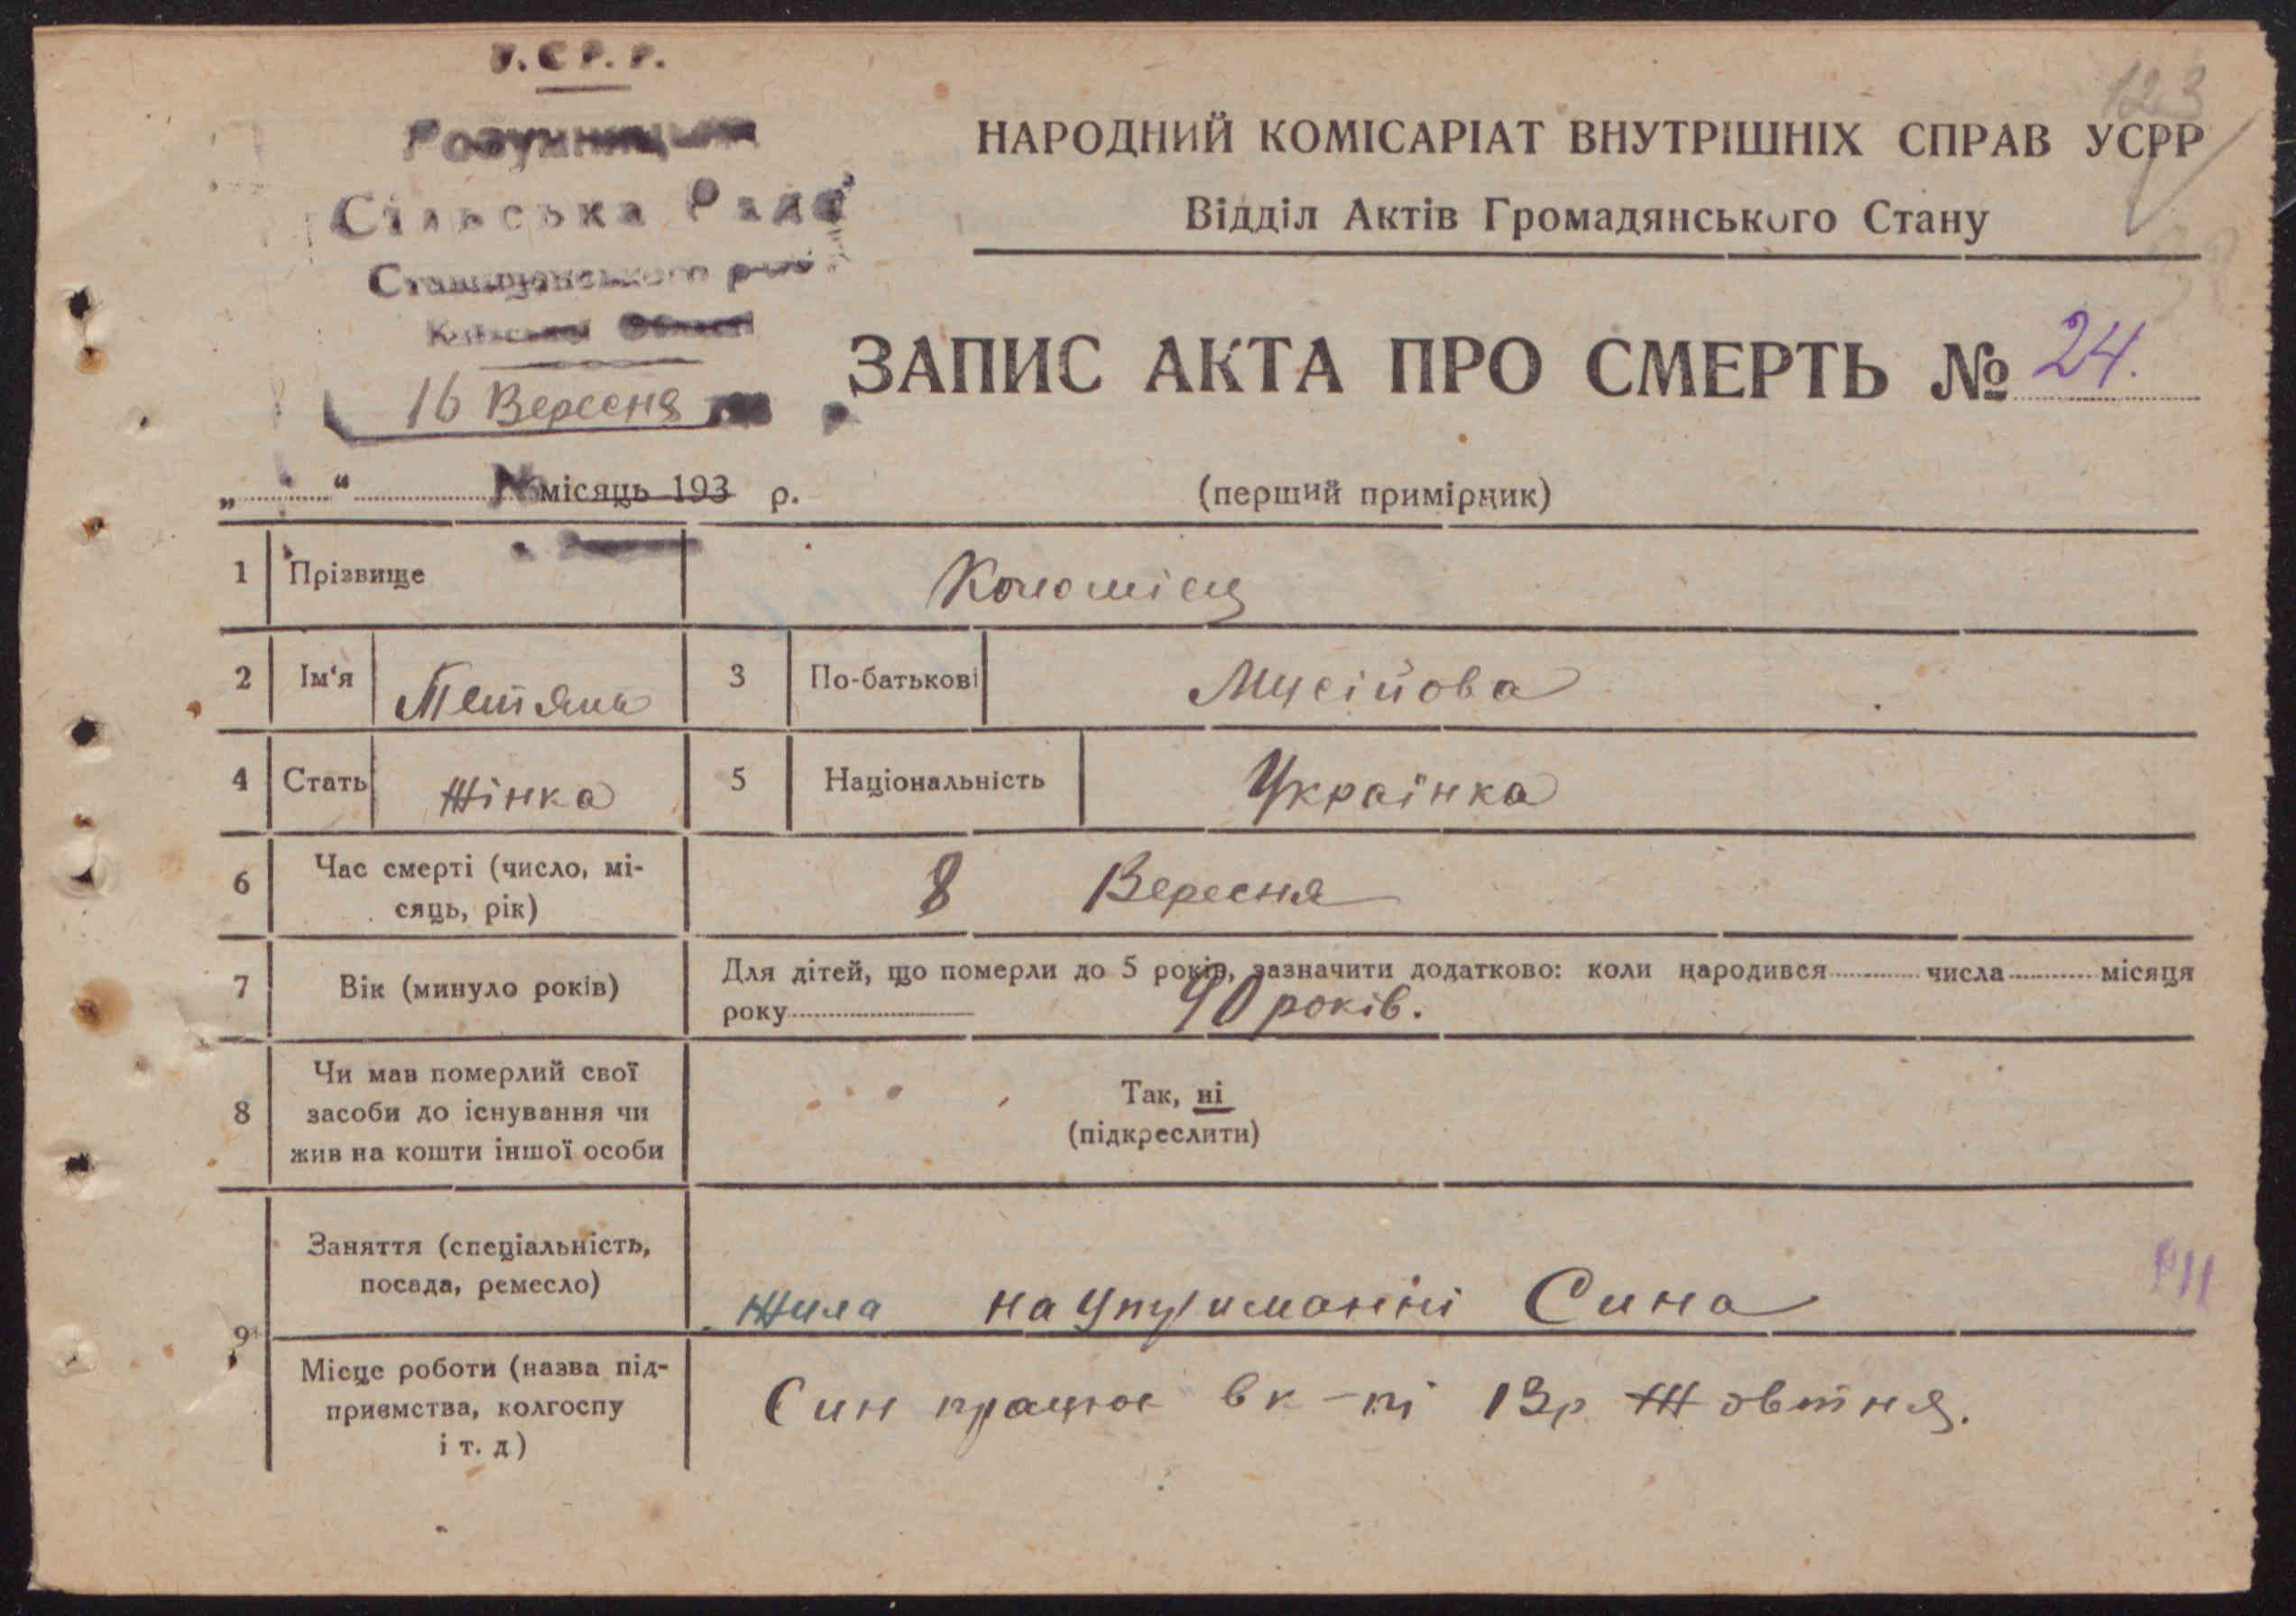 У.С.Р.Р.
Розумницька
Сільська Рада
Ставищанського рай
Київської Області
16 Вересня
123
НАРОДНИЙ КОМІСАРІАТ ВНУТРІШНІХ СПРАВ УСРР
Відділ Актів Громадянського Стану
ЗАПИС АКТА ПРО СМЕРТЬ № 24.
„ “ місяць 193 р.
(перший примірник)
1 Прізвище Коломієц
2 Ім‘я Тетяна 3 По-батькові Мусійова
4 Стать Жінка 5 Національність Українка
6 Час смерті (число, мі-
сяць, рік) 8 Вересня
7 Вік (минуло років) Для дітей, що померли до 5 років, зазначити додатково: коли народився числа місяця
року 90 років.
8 Чи мав померлий свої
засоби до існування чи
жив на кошти іншої особи
Так, ні
(підкреслити)
9 Заняття (спеціальність,
посада, ремесло) Жила на уприманні Сина
Місце роботи (назва під-
приємства, колгоспу
і т. д)
Син працює в к-пі 13р Жовтня.